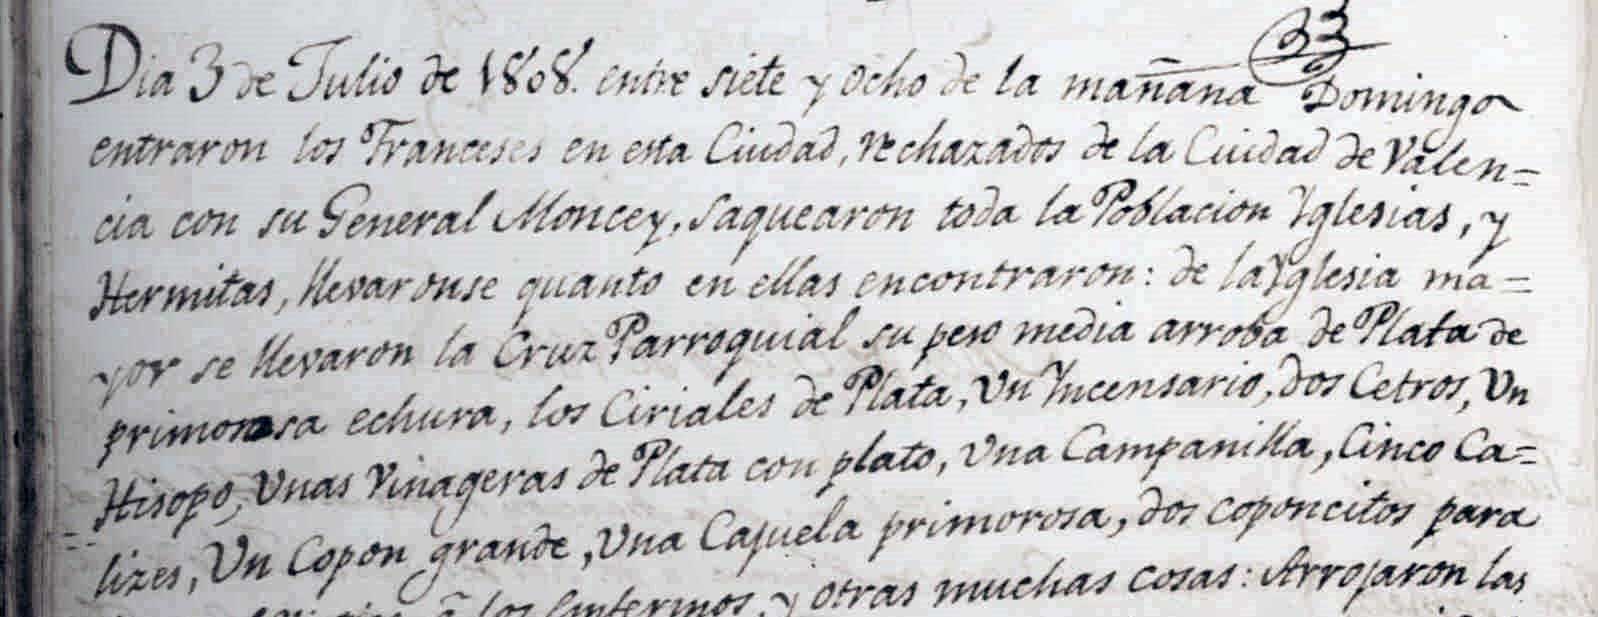 33
Dia 3 de Julio de 1808. entre siete y ocho de la mañana Domingo
entraron los Franceses en esta Ciudad, rechazados de la Ciudad de Valen=
cia con su General Moncey, saquearon toda la Poblacion Yglesias, y
Hermitas, llevaronse quanto en ellas encontraron: de la Yglesia ma=
yor se llevaron la Cruz Parroquial su peso media arroba de Plata de
primorosa echura, los Ciriales de Plata, Un Yncensario, dos Cetros, Un
Hisopo, Unas Vinageras de Plata con plato, Una Campanilla, Cinco Ca=
lizes, Un Copon grande, Una Cajuela primorosa, dos coponcitos para
à los Enfermos, y otras muchas cosas: Arrojaron las